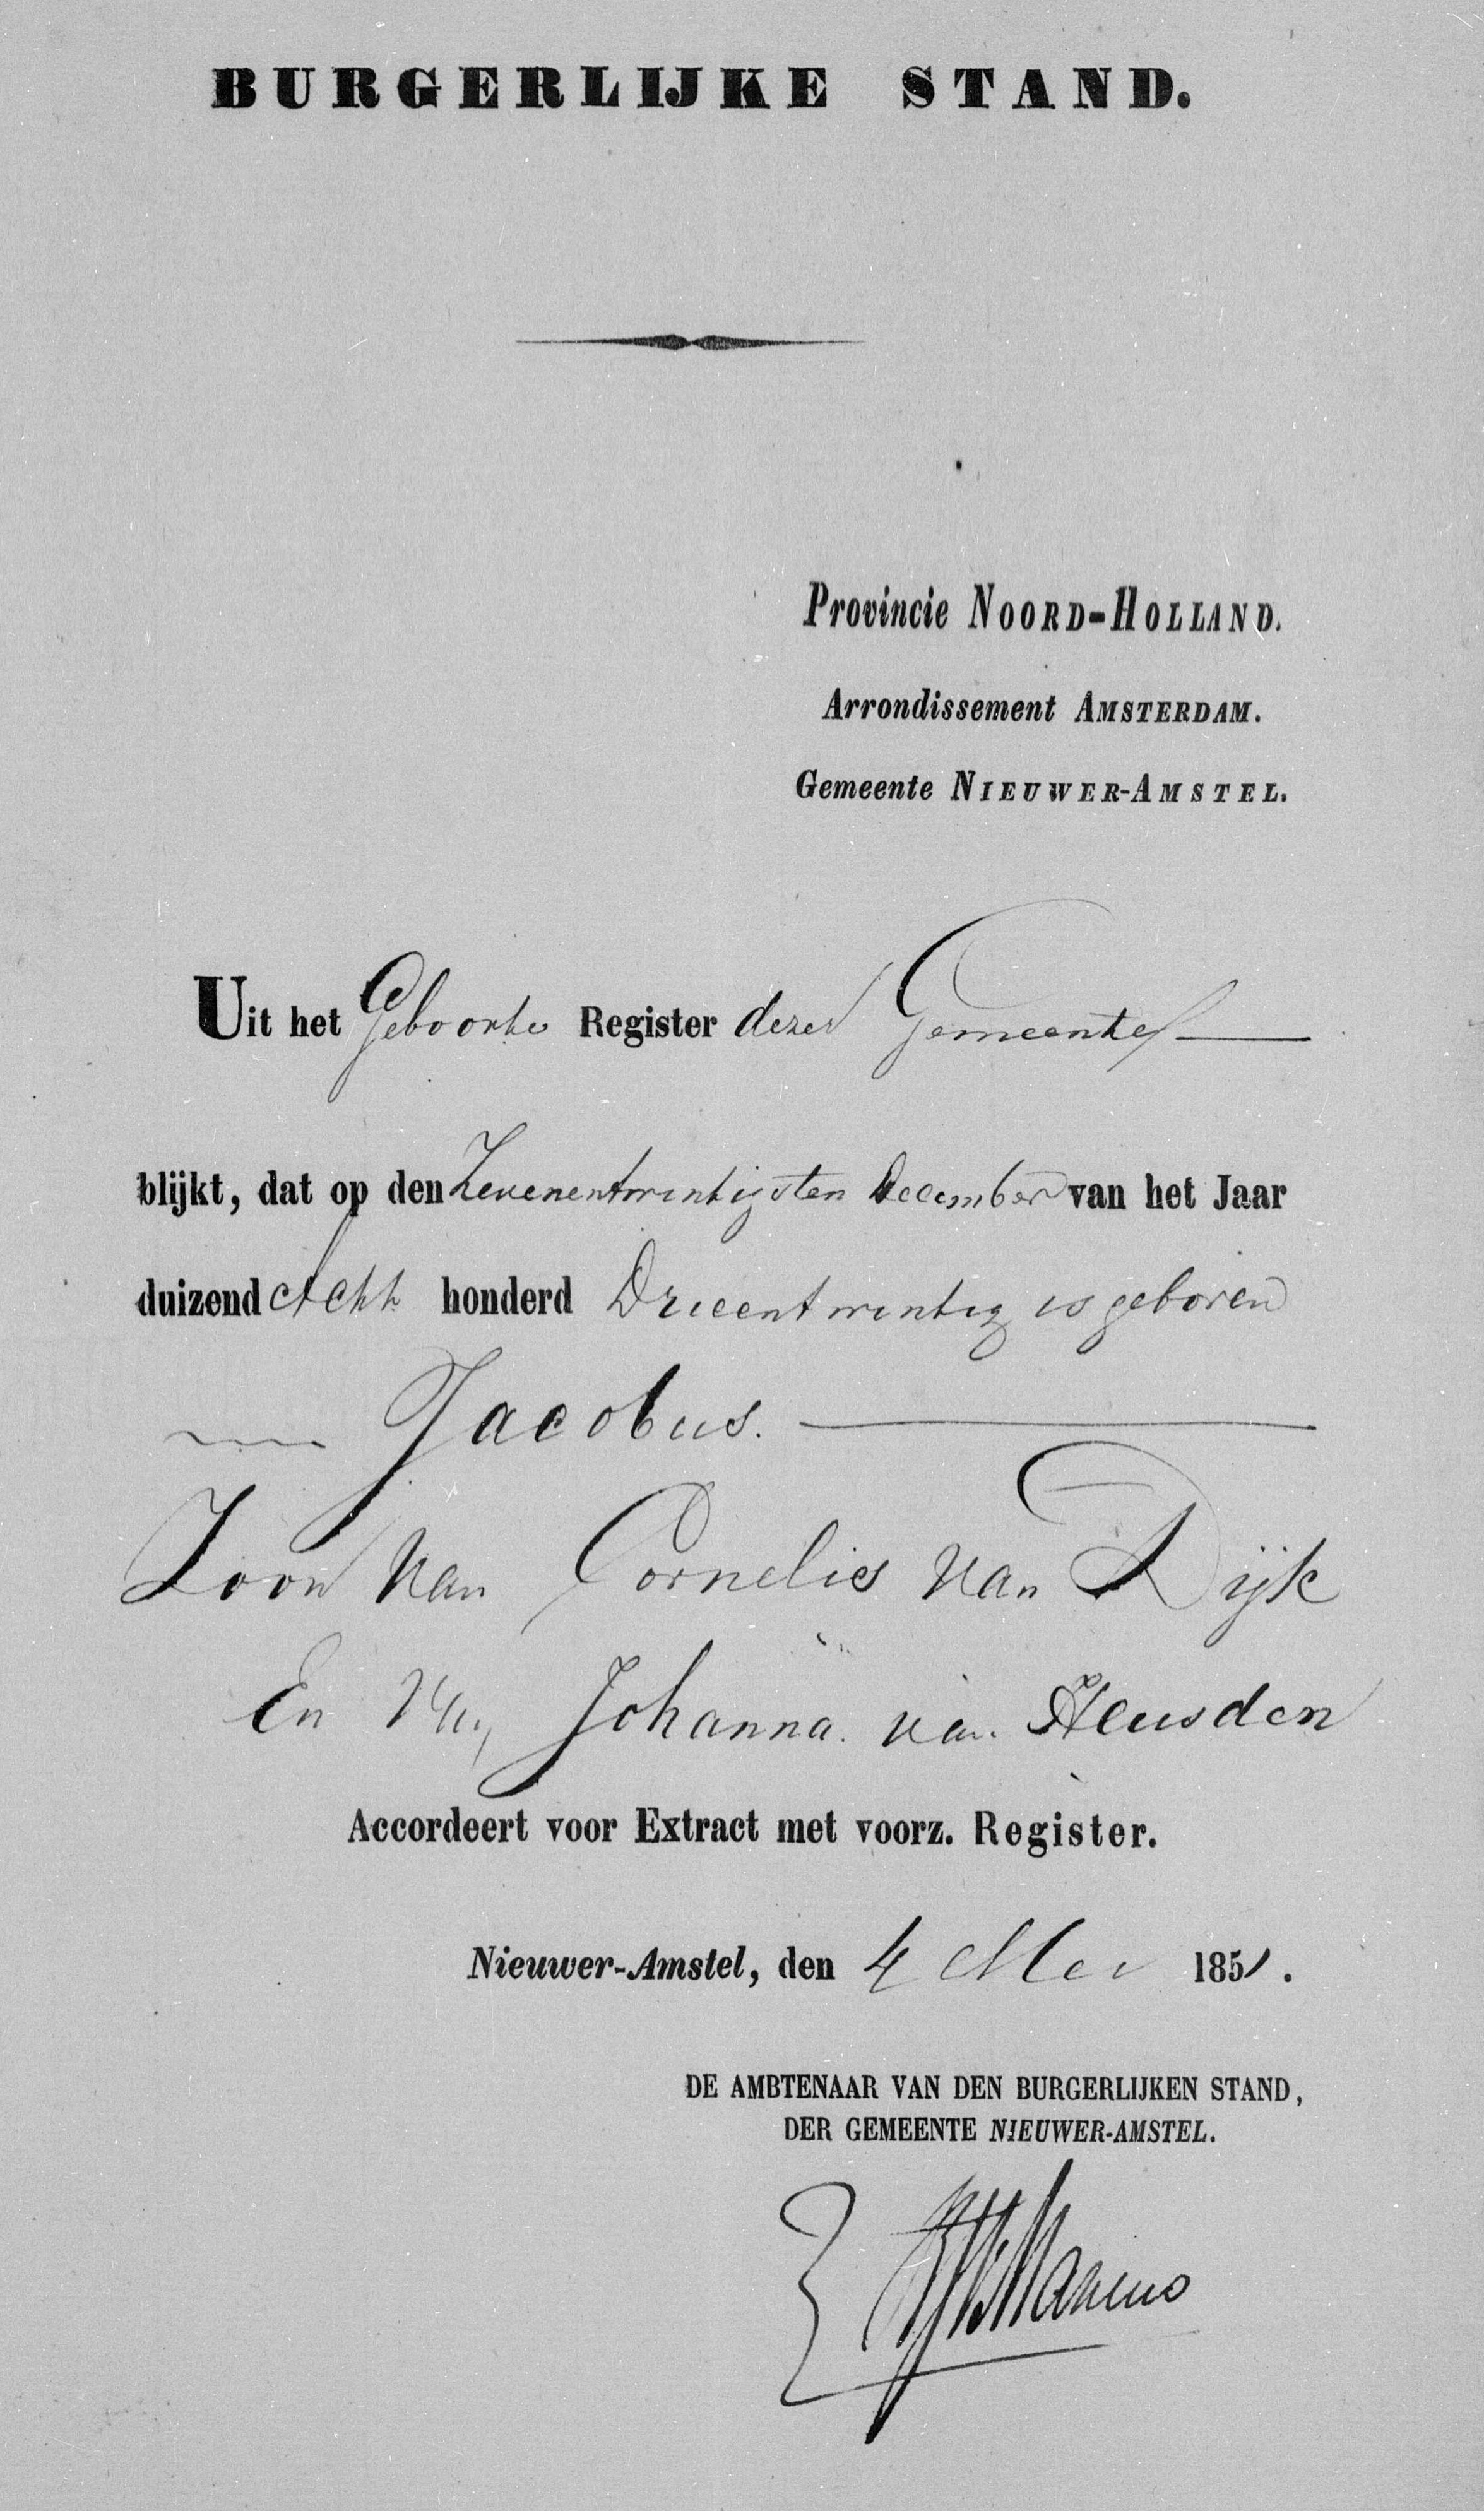 BURGERLIJKE STAND.
Provincie NOORD-HOLLAND.
Arrondissement AMSTERDAM.
Gemeente NIEUWER-AMSTEL.
Uit het Geboorte Register dezer Gemeente
blijkt, dat op den Zevenentwintigsten December van het Jaar
duizend Acht honderd Drieentwintig is geboren
Jacobus.
Zoon van Cornelis van Dijk
En van Johanna van Heusden
Accordeert voor Extract met voorz. Register.
Nieuwer-Amstel, den 4 Mei 1851.
DE AMBTENAAR VAN DEN BURGERLIJKEN STAND,
DER GEMEENTE NIEUWER-AMSTEL.